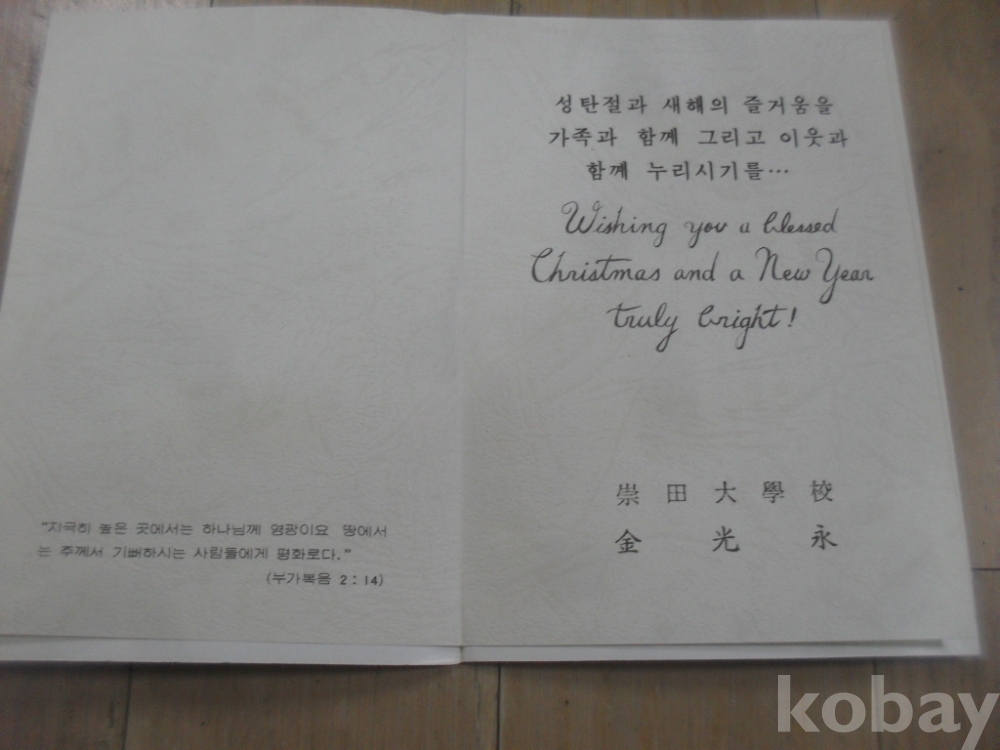 "지극히 높은 곳에서는 하나님께 영광이요 땅에서
는 주께서 기뻐하시는 사람들에게 평화로다."
(누가복음 2 : 14)
성탄절과 새해의 즐거움을
가족과 함께 그리고 이웃과
함께 누리시기를…
Wishing you a blessed
Christmas and a New Year
truly bright!
崇田大學校
金光永
kobay